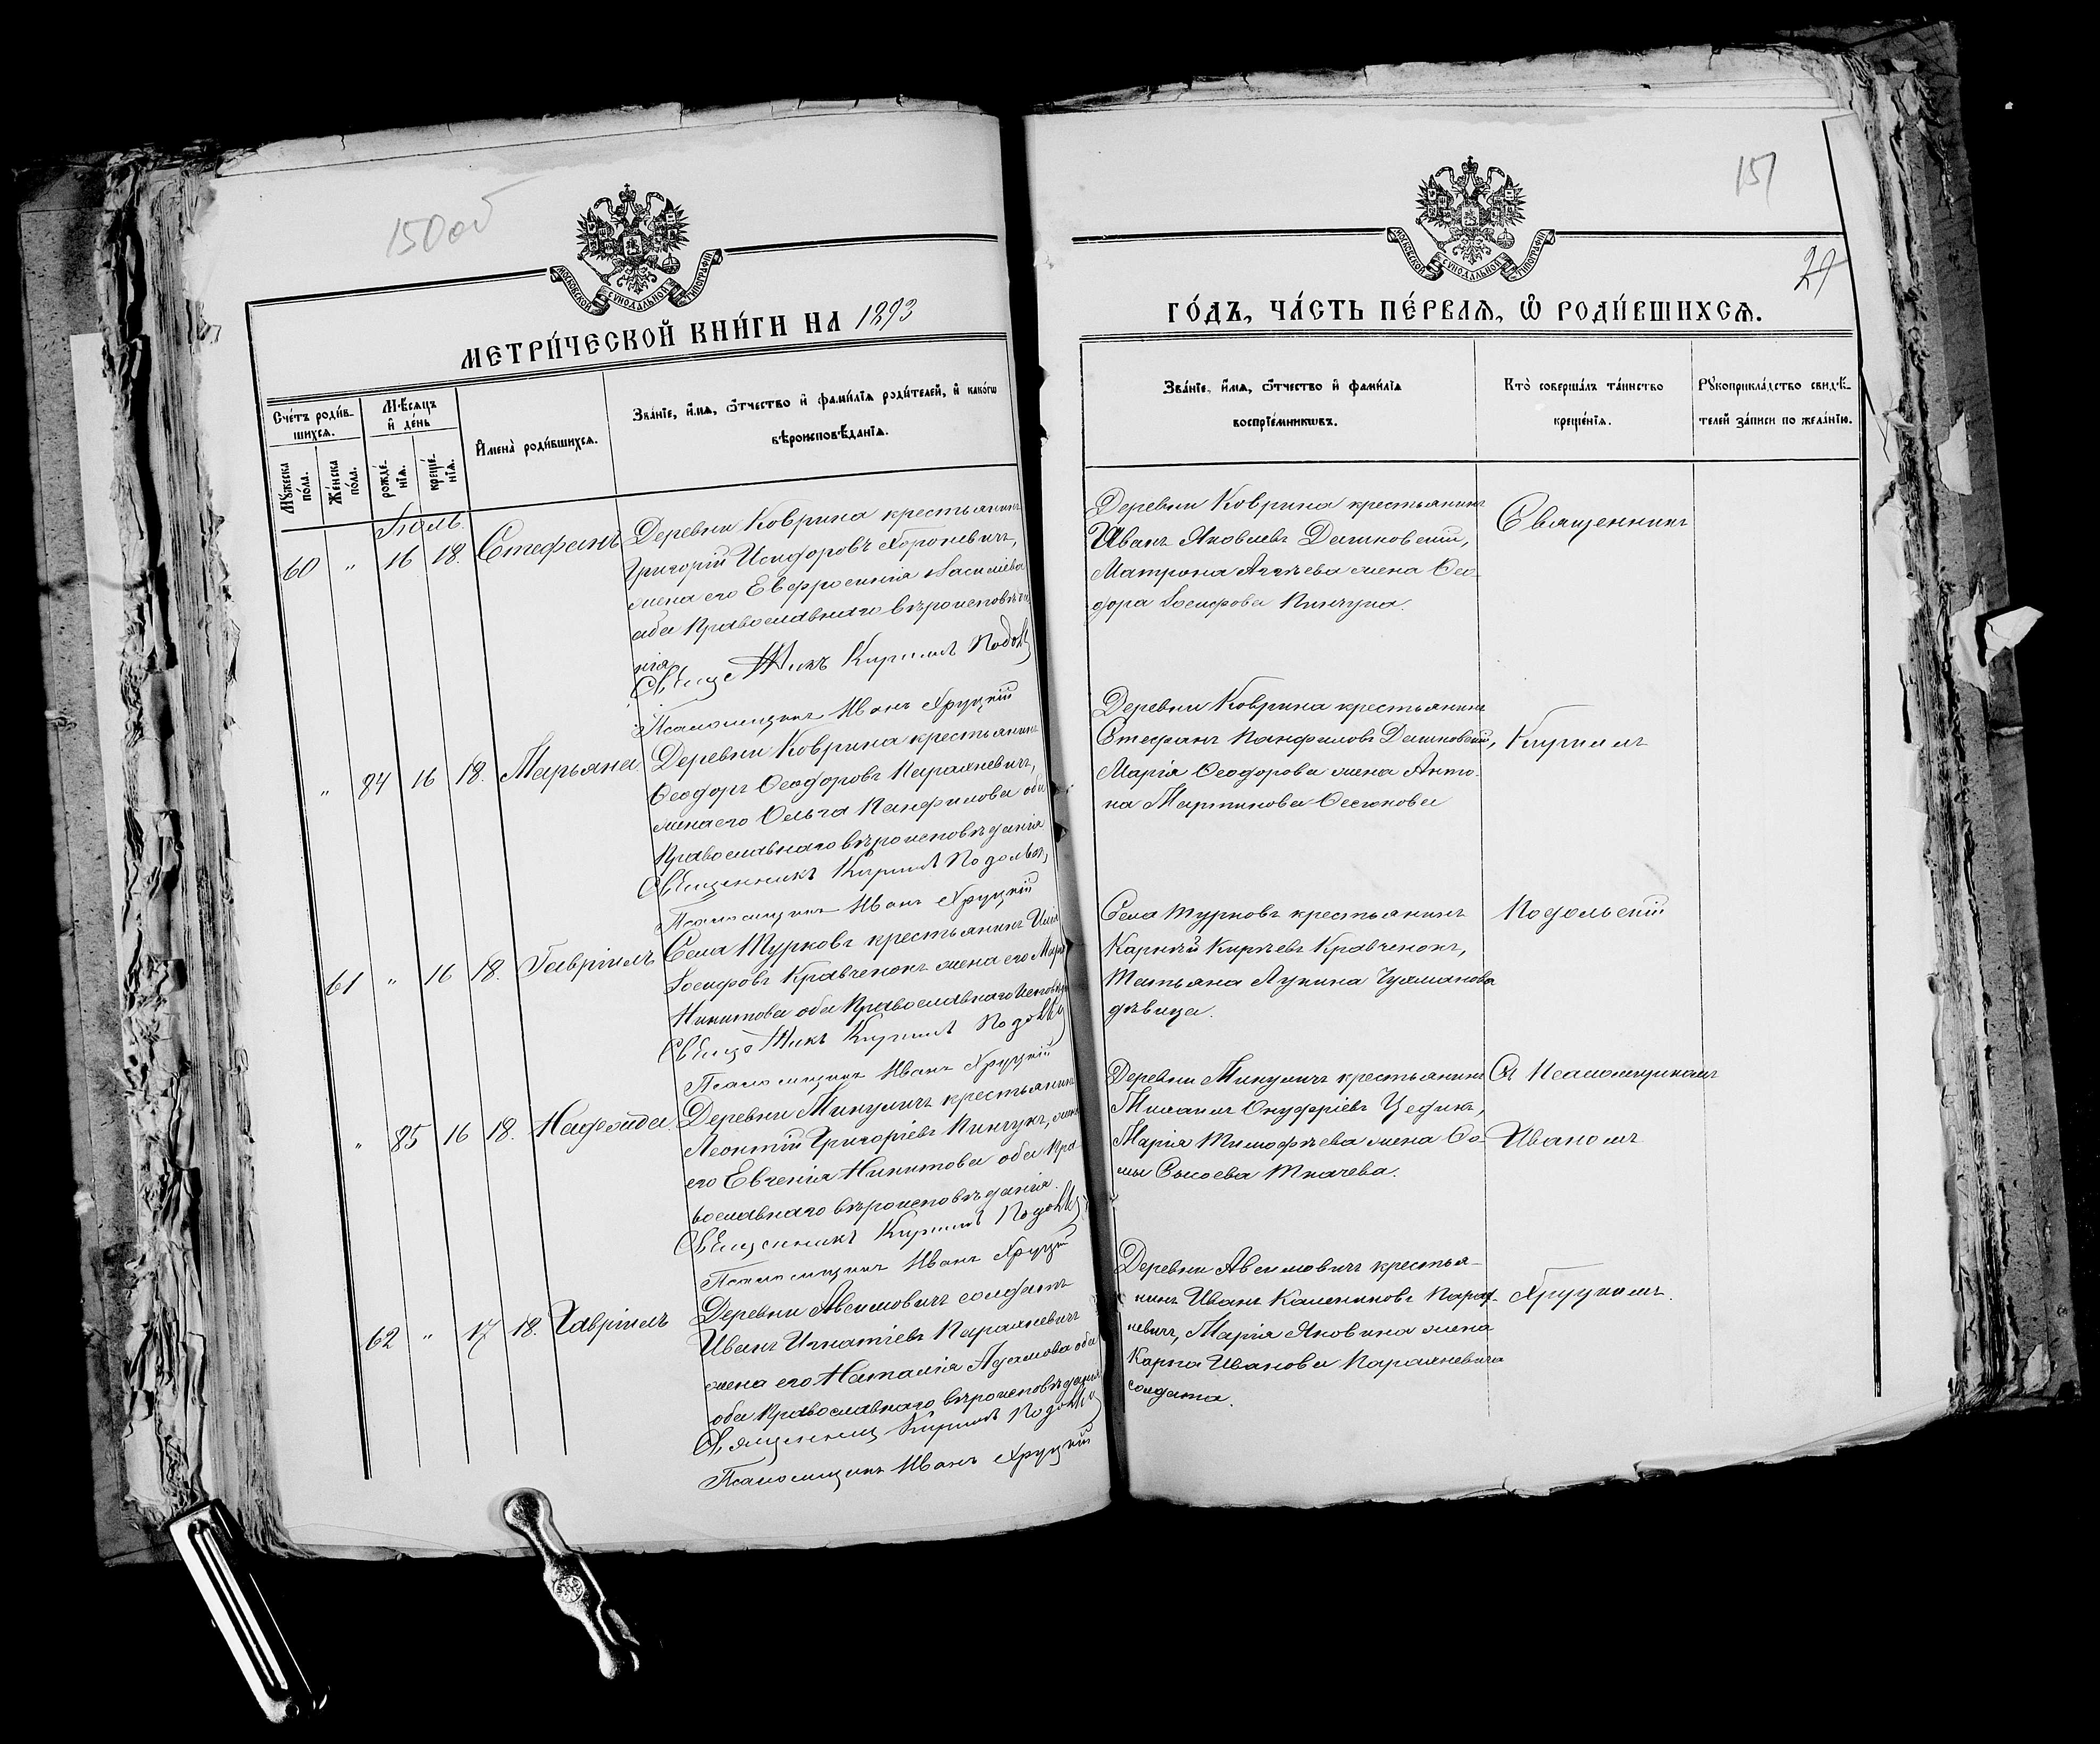 150 об
МОСКОВСКОЙ СѴНОДАЛЬНОЙ ТИПОГРАФІИ
МЕТРИ́ЧЕСКОЙ КНИ́ГИ НА 1893
Сче́тъ роди́в-
шихся.
Мѣ́сяцъ
и҆ де́нь
Мꙋ́жеска
по́ла.
Же́нска
по́ла.
рожде́-
нїѧ.
креще́-
нїѧ.
И҆мена̀ роди́вшихсѧ.
Зва́нїе, и҆́мѧ, ѻ҆́тчество и҆ фами́лїѧ роди́телей, и҆ како́гѡ
вѣроисповѣ́данїѧ.
Іюль.
60 " 16 18. Стефанъ
Деревни Коврина крестьянинъ
Григорій Исидоровъ Хороневичъ,
жена его Евфросинія Василіева
оба Православнаго вѣроисповѣда
нія
Кириллъ
Псаломщикъ Иванъ Хруцкій
" 84 16 18. Марьяна
Деревни Коврина крестьянинъ
Ѳеодоръ Ѳеодоровъ Парахневичъ,
жена его Ольга Панфилова оба
Православнаго вѣроисповѣданія
Священникъ Кириллъ Подольск
Псаломщикъ Иванъ Хруцкій
61 " 16 18. Гавріилъ
Села Турковъ крестьянинъ
Іосифовъ Кравченокъ жена его
Никитова оба Православнаго
Кириллъ
Псаломщикъ Иванъ Хруцкій
" 85 16 18. Надежда.
Деревни Микуличъ крестьянинъ
Леонтій Григоріевъ Пинчукъ, жена
его Евгенія Никитова оба Пра-
вославнаго вѣроисповѣданія.
Священникъ Кириллъ
Псаломщикъ Иванъ Хруцкій
62 " 17 18. Гавріилъ
Деревни Авсимовичъ солдатъ
Иванъ Игнатіевъ Парахневичъ
жена его Наталія Адамова оба
оба Православнаго вѣроисповѣданія
Священникъ Кириллъ
Псаломщикъ Иванъ Хруцкій
151
27
МОСКОВСКОЙ СѴНОДАЛЬНОЙ ТИПОГРАФІИ
ГО́ДЪ, ЧА́СТЬ ПЕ́РВАѦ, Ѡ҆ РОДИ́ВШИХСѦ.
Зва́нїе, и҆́мѧ, ѻ҆́тчество и҆ фами́лїѧ
воспрїе́мникѡвъ.
Кто̀ соверша́лъ та́инство
креще́нїѧ.
Рꙋкоприкла́дство свидѣ́-
телей за́писи по жела́нїю.
Деревни Коврина крестьянинъ
Иванъ Яковлевъ Дашковскій,
Матрона Аггѣева жена Ѳео-
дора Іосифова Пинчука.
Священникъ
Деревни Коврина крестьянинъ
Стефанъ Панфиловъ Дашковскій,
Марія Ѳеодорова жена Анто-
на Мартинова
Кириллъ
Села Турковъ крестьянинъ
Карпъ Кравченокъ,
Татьяна Лукина
дѣвица.
Подольскій
Деревни Микуличъ крестьянинъ
Михаилъ Онуфріевъ Цедикъ,
Марія Тимофѣева жена Ѳо-
мы Сысоева Ткачева.
Съ Псаломщикомъ
Иваномъ
Деревни Авсимовичъ крестья-
нинъ Иванъ Калениковъ Парах-
невичъ, Марія Яковлина жена
Карпа Иванова Парахневича
солдата.
Хруцкимъ.